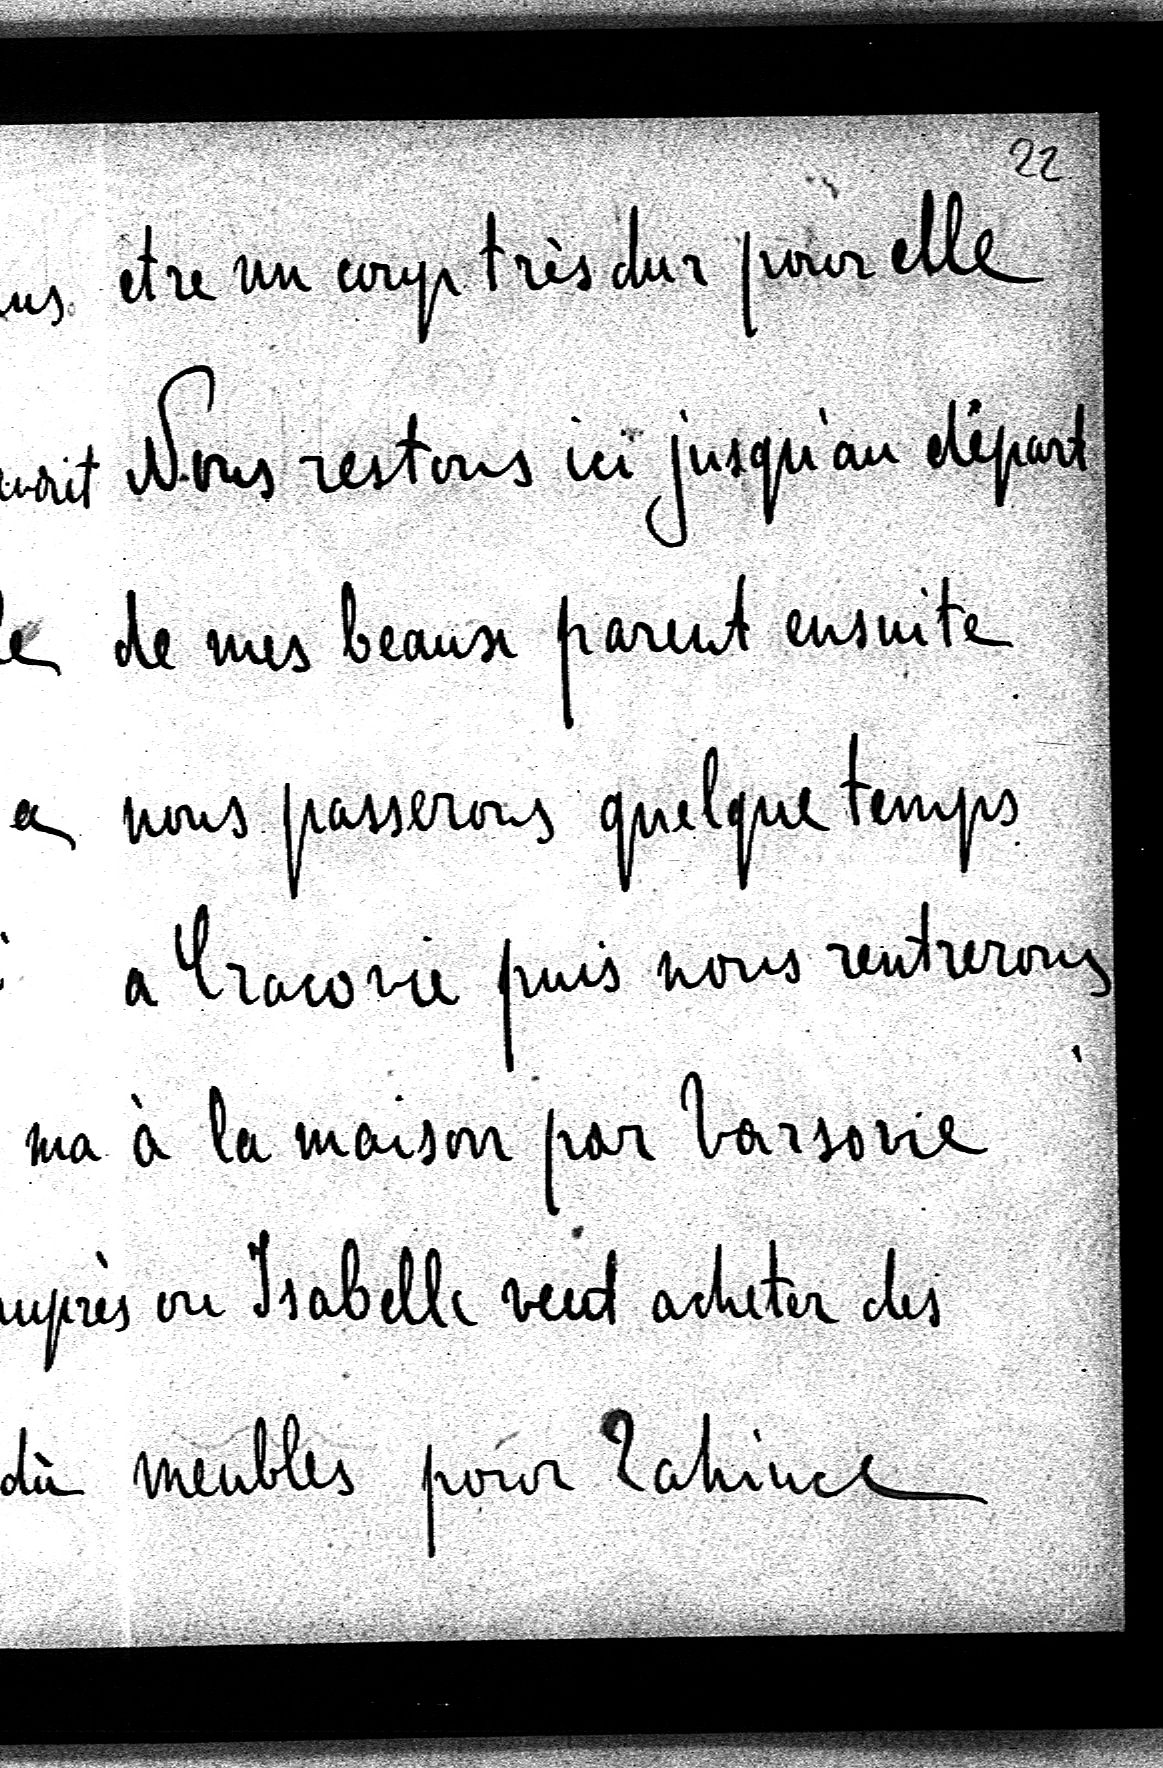 22
etre un coup très dur pour elle
Nous restons ici jusqu'au départ
de mes beaux parent ensuite
nous passerons quelque temps
a Cracovie puis nous rentrerons
ma à la maison par Varsovie
auprès ou Isabelle veut acheter des
dû meubles pour